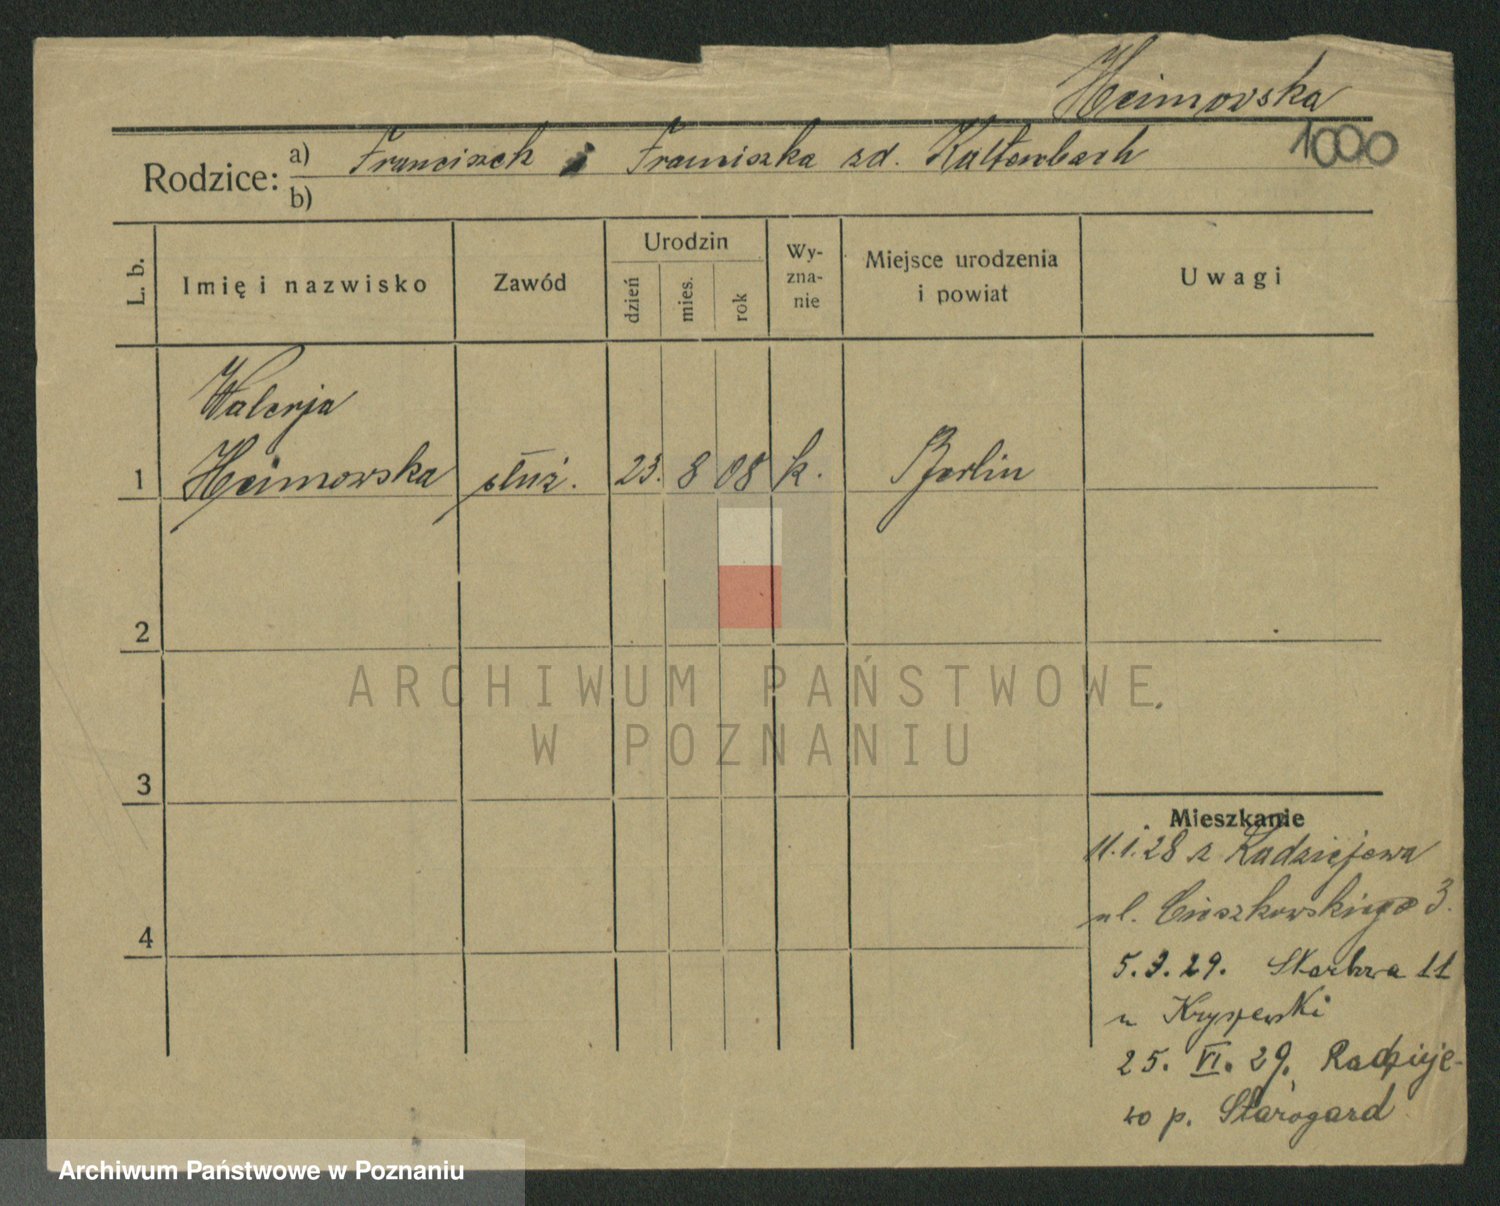 Heimowska
1000
Rodzice: a) Franciszek i Franciszka zd. Kaltenbach
b)
L. b. Imię i nazwisko Zawód Urodzin dzień mies. rok Wy-zna-nie Miejsce urodzenia i powiat Uwagi
Walerja
1 Heimowska służ. 23. 8 08 k. Berlin
2
ARCHIWUM PAŃSTWOWE
W POZNANIU
3
Mieszkanie
11.1.28 z Radziejewa
ul. Cieszkowskiego 3.
4
5.3.29. 11
u Kryszewski
25. VI. 29. Radzieje-
wo p. Starogard
Archiwum Państwowe w Poznaniu